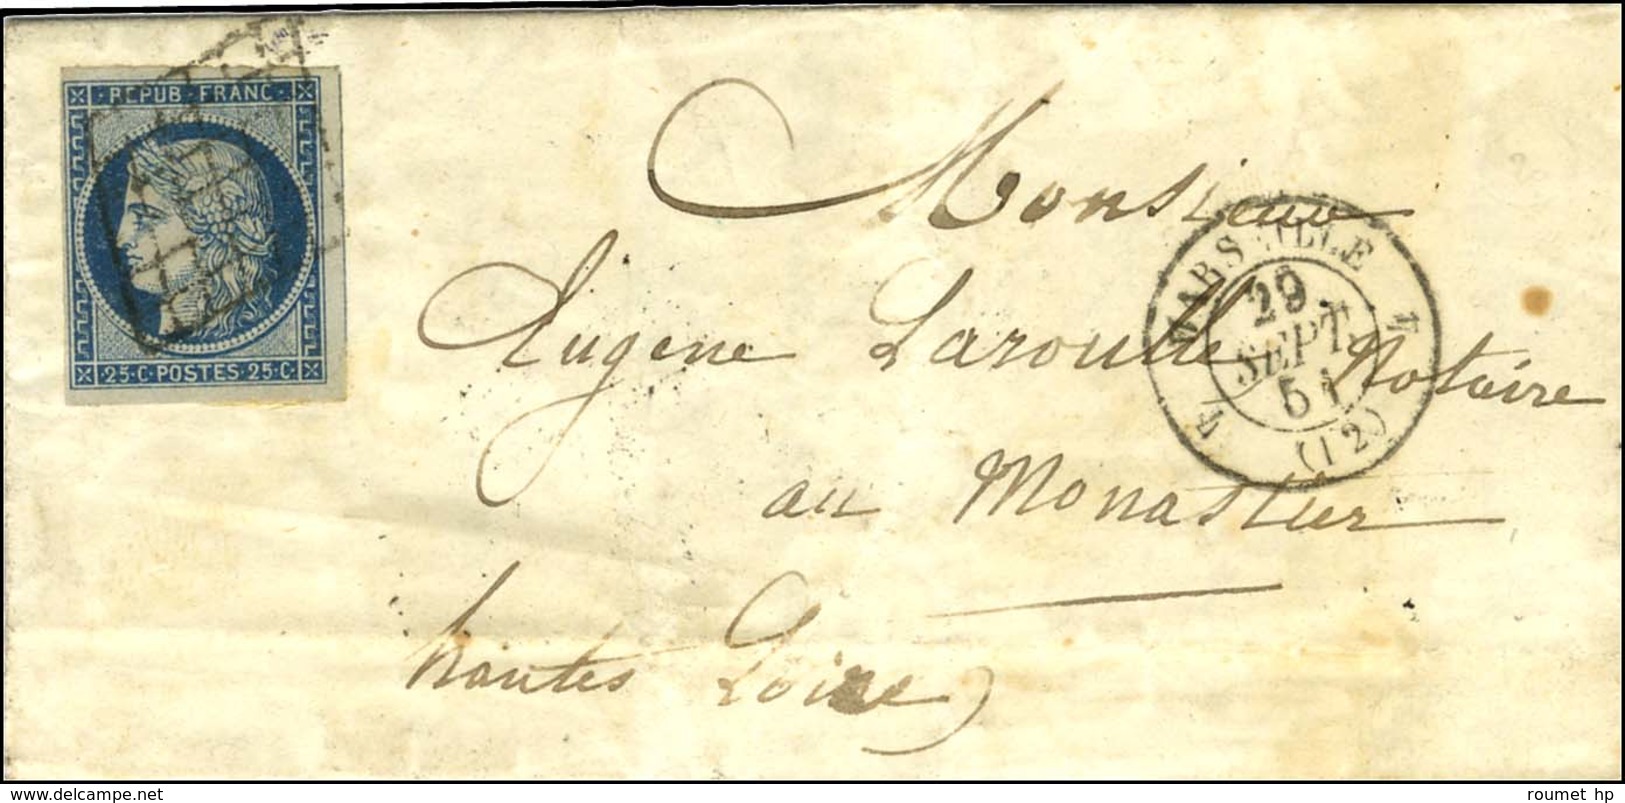 REPUB · FRANC ·
25 · C · POSTES · 25 · C ·
MARSEILLE
29
SEPT.
51
(12)
Monsieur
Eugène Laroulle Notaire
au Monastier
hautes Loire
www.delcampe.net
roumet hp